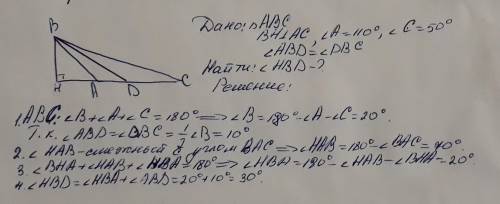 Дано: △ABC
BH⊥AC, ∠A=110°, ∠C=50°
∠ABD=∠DBC
Найти: ∠HBD-?
Решение:
B
H A D C
1. ABC: ∠B+∠A+∠C=180° ⟹ ∠B=180°-∠A-∠C=20°.
Т.к. ∠ABD=∠DBC=½∠B=10°
2. ∠HAB-смежный с углом BAC ⟹ ∠HAB=180°-∠BAC=70°.
3. ∠BHA+∠HAB+∠HBA=180° ⟹ ∠HBA=180°-∠HAB-∠BHA=20°.
4. ∠HBD=∠HBA+∠ABD=20°+10°=30°.